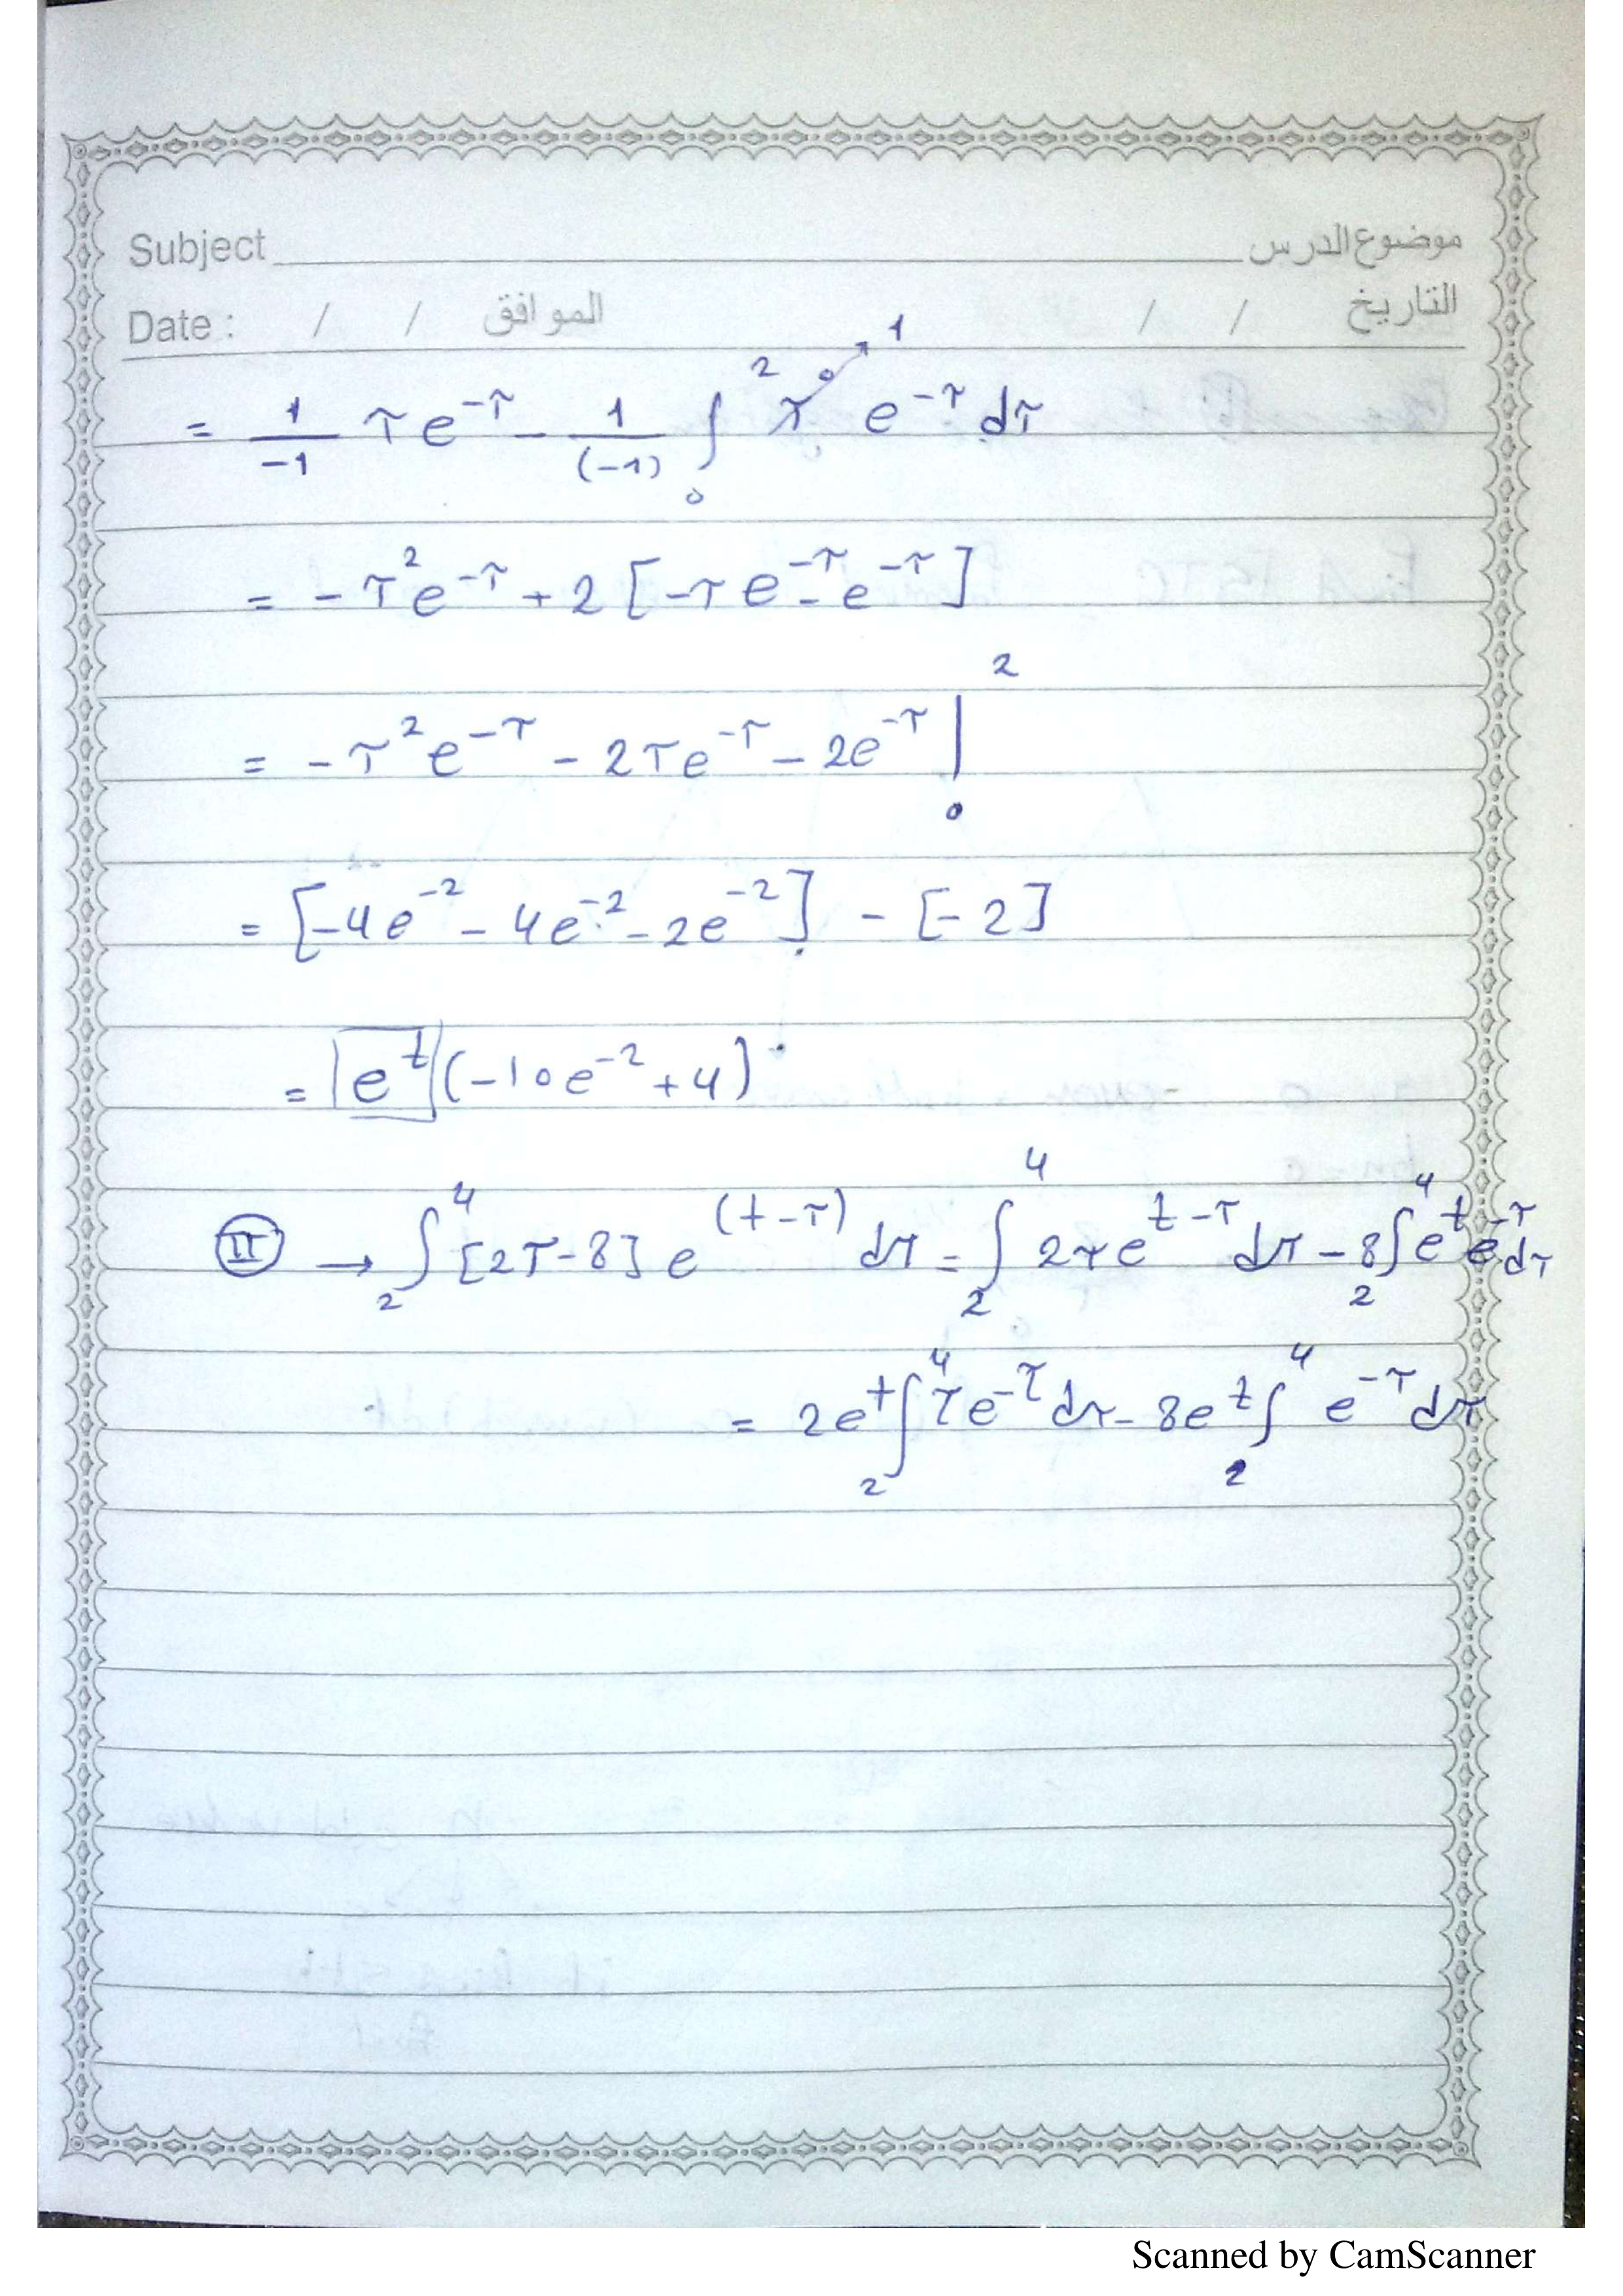 Subject موضوع الدرس
Date : / / الموافق / / التاريخ
= 1/-1 τe^-τ - 1/(-1) ∫_0^2 τ^0 → 1 e^-τ dτ
= -τ^2 e^-τ + 2 [-τe^-τ - e^-τ]
= -τ^2 e^-τ - 2τe^-τ - 2e^-τ |_0^2
= [-4e^-2 - 4e^-2 - 2e^-2] - [-2]
= e^t (-10e^-2 + 4)
II → ∫_2^4 [2τ-8] e^(t-τ) dτ = ∫_2^4 2τe^t-τ dτ - 8∫_2^4 e^t e^-τ dτ
= 2e^t ∫_2^4 τe^-τ dτ - 8e^t ∫_2^4 e^-τ dτ
Scanned by CamScanner